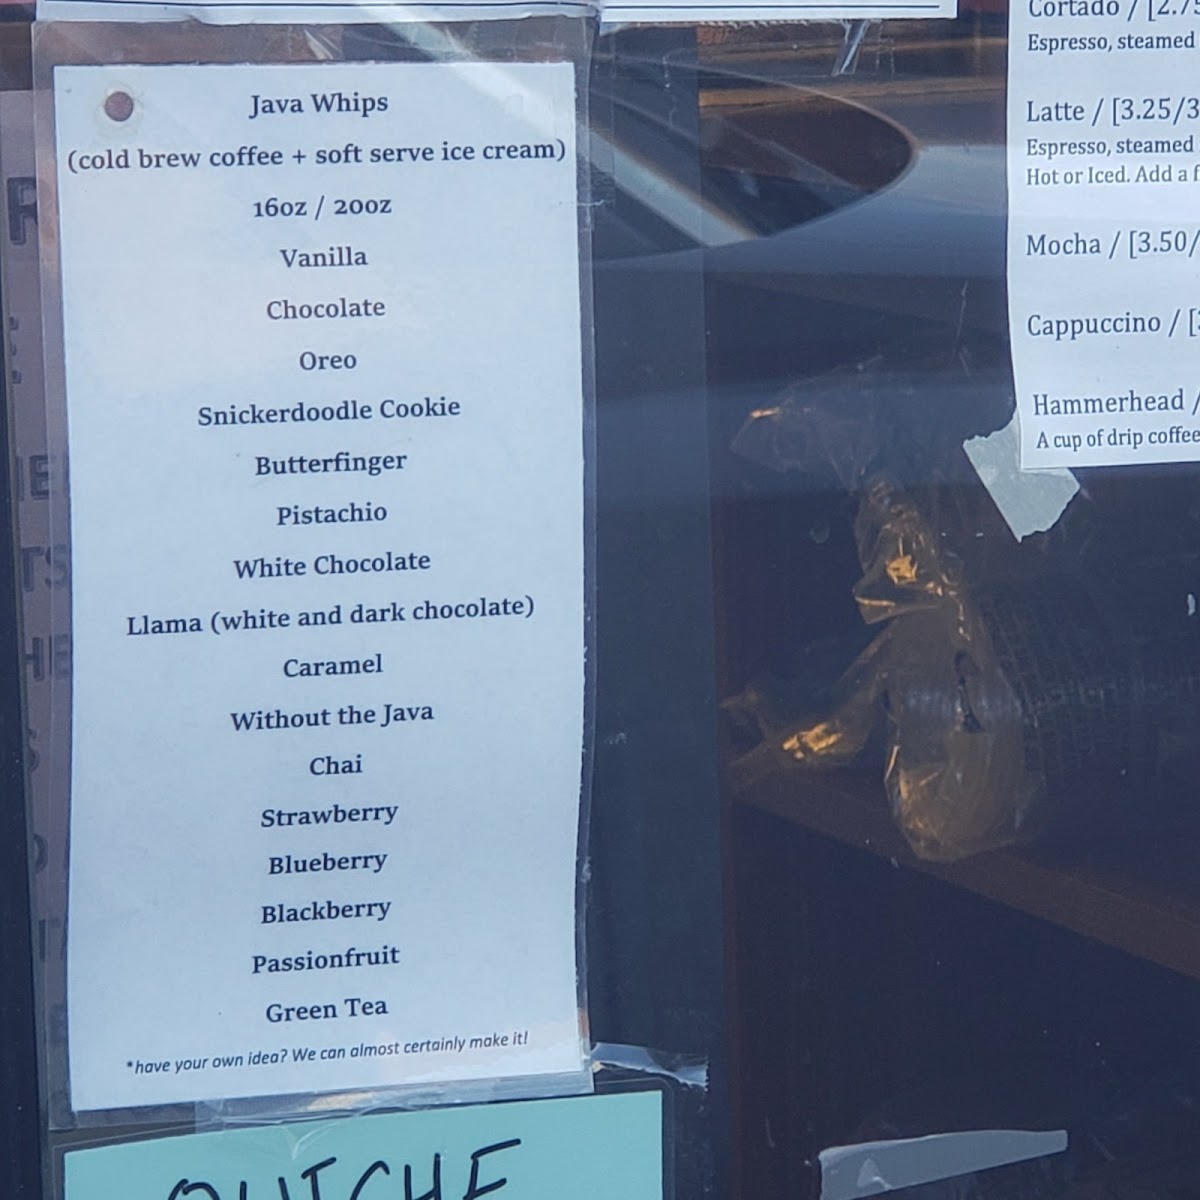 Java Whips
(cold brew coffee + soft serve ice cream)
16oz / 20oz
Vanilla
Chocolate
Oreo
Snickerdoodle Cookie
Butterfinger
Pistachio
White Chocolate
Llama (white and dark chocolate)
Caramel
Without the Java
Chai
Strawberry
Blueberry
Blackberry
Passionfruit
Green Tea
*have your own idea? We can almost certainly make it!
QUICHE
Cortado / [2.75
Espresso, steamed
Latte / [3.25/3
Espresso, steamed
Hot or Iced. Add a f
Mocha / [3.50/
Cappuccino / [
Hammerhead /
A cup of drip coffee